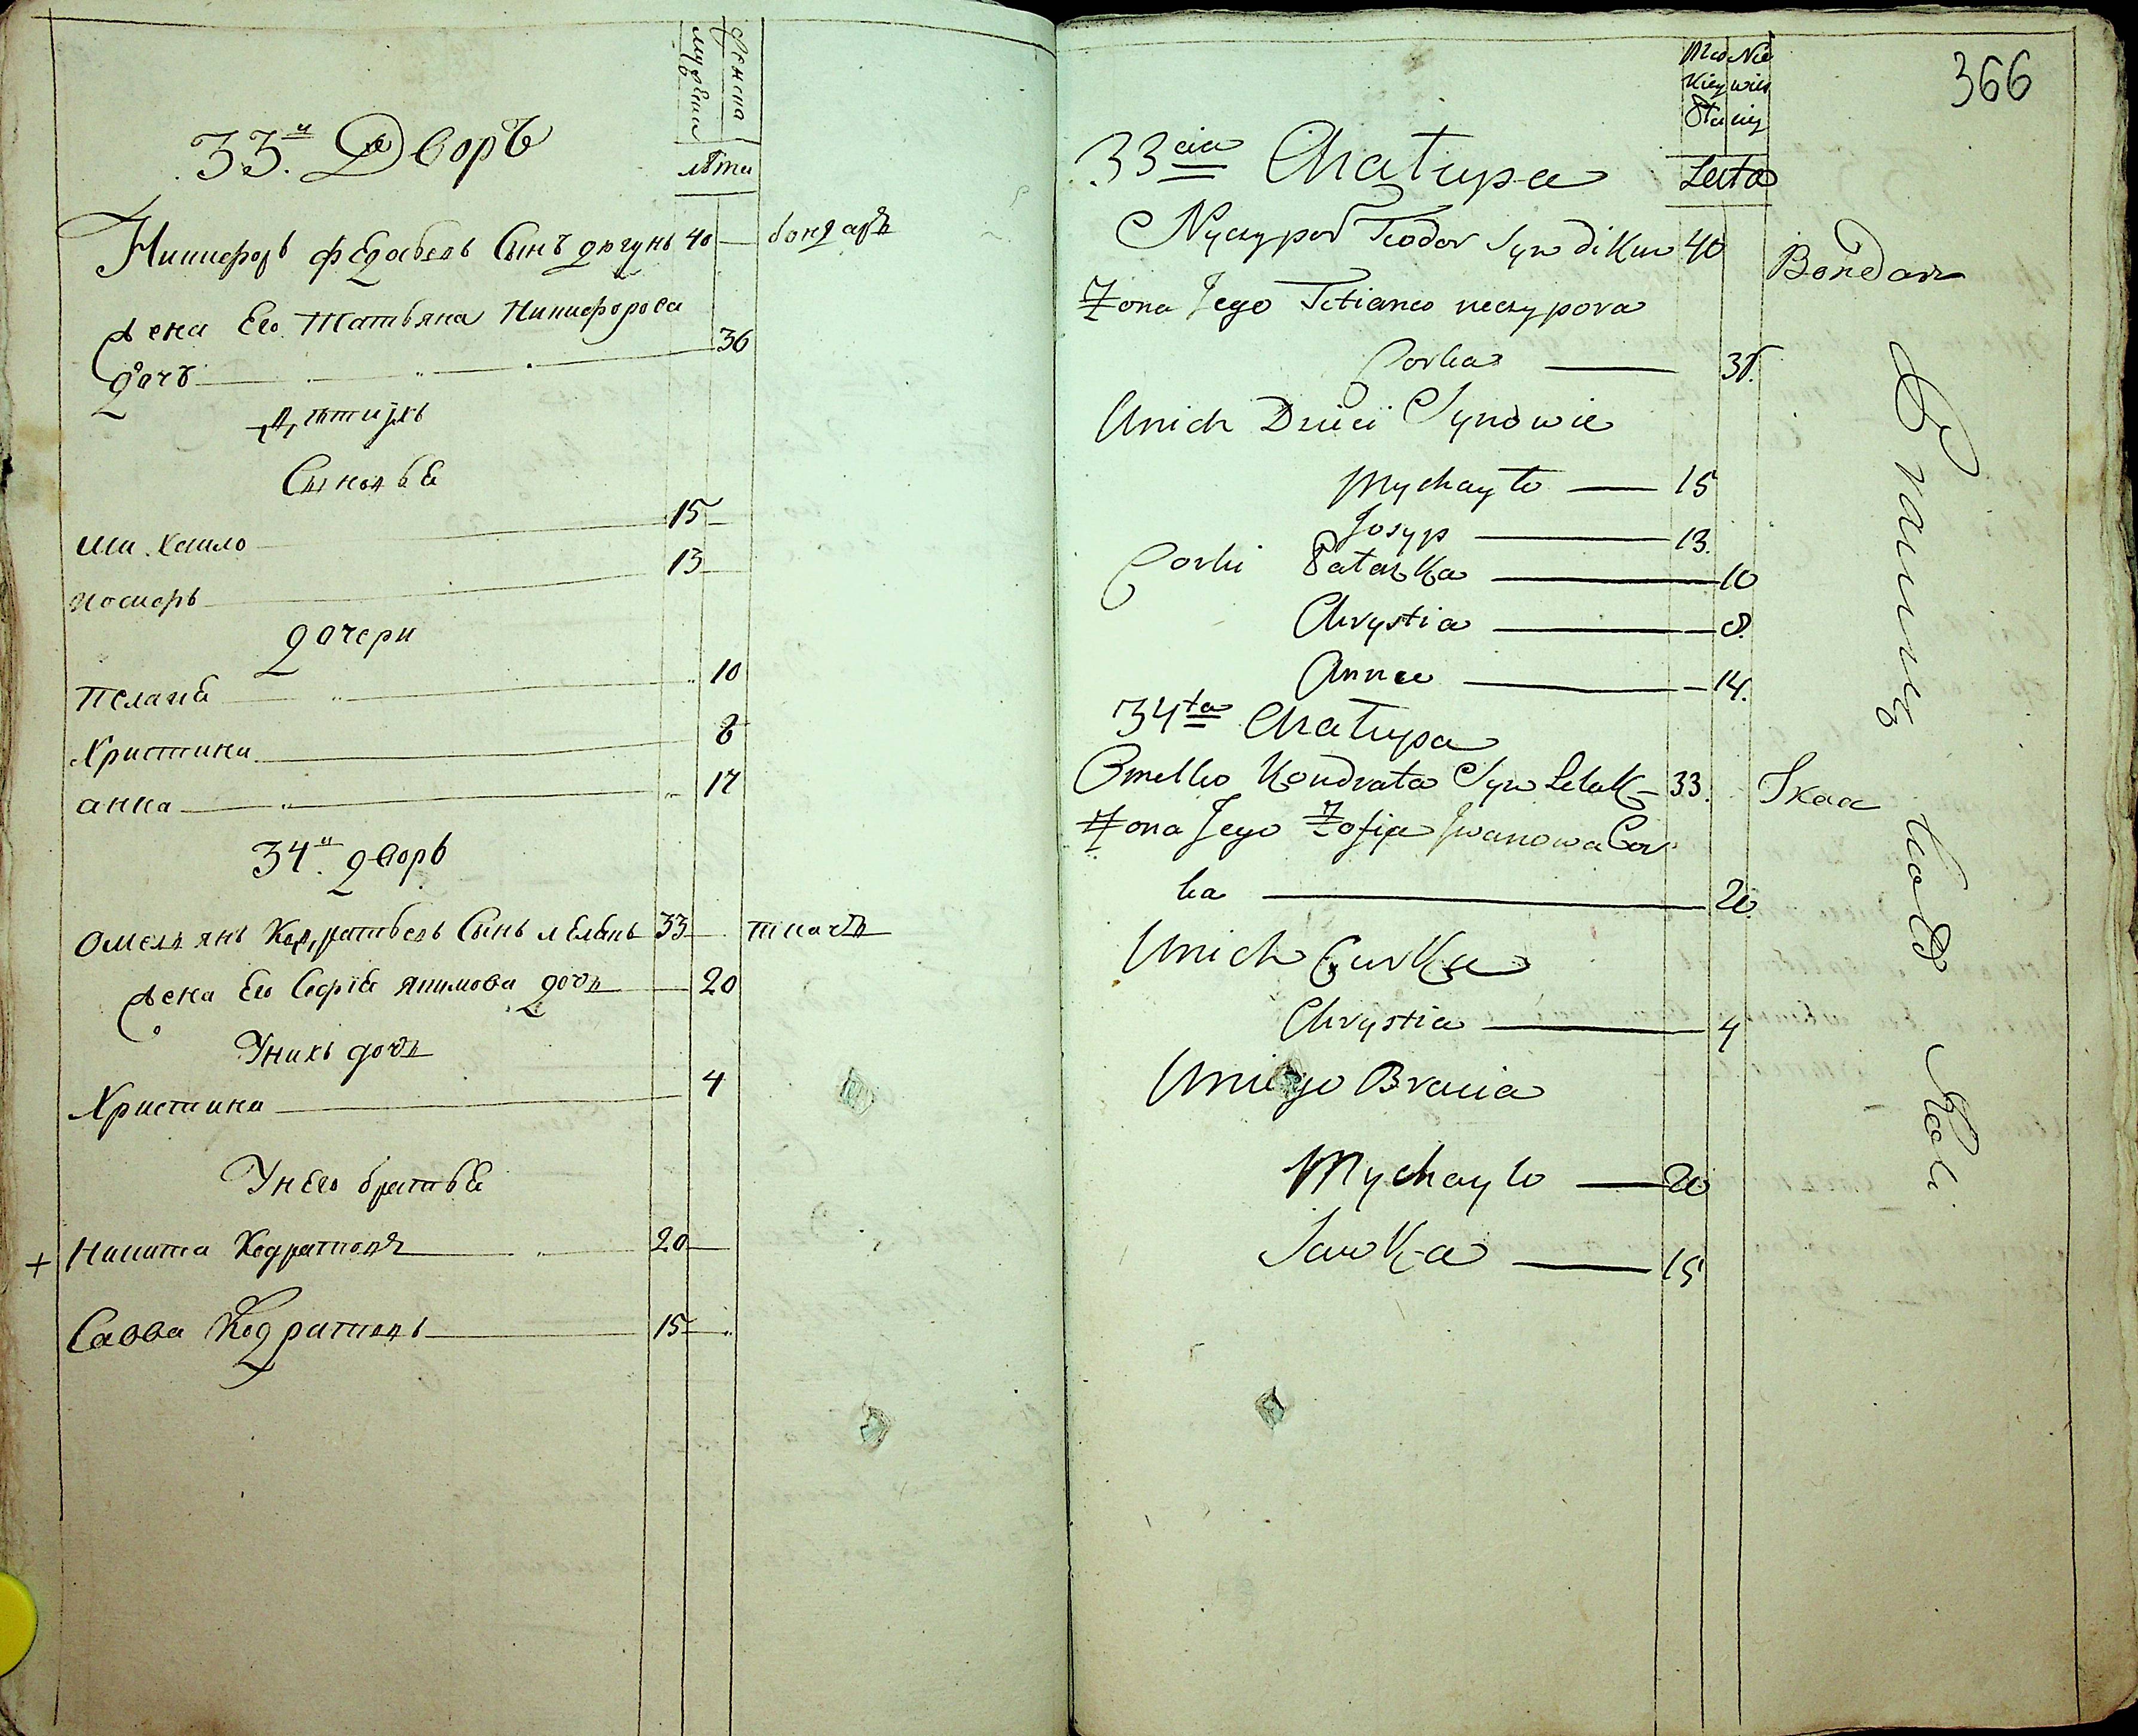 мужеска
женска
лѣта
33.й Дворъ
Никифоръ Федавевъ Сынъ дюгунъ 40 бондаръ
Жена Его Татьяна Никифорова
дочъ 36
Дѣтиихъ
Сыновьѣ
Ми.хаило 15
Иосифъ 13
дочери
Пелагѣ 10
Христина 8
анна 14
34.й дворъ
Омельянъ Кодратьевъ Сынъ 33 ткачь
Жена Его Софіѣ Якимова дочь 20
Унихъ дочь
Христина 4
Унего братьѣ
+ Никита Кодратовъ 20
Савва Кодратовъ 15
366
Mes Nie
Kiey wies
Sta ciey
Leita
33cia Chatupa
Nyczypor Teodor Syn diKun 40 Bondarz
Zona Jego Tetianna neczypora
Corka 36.
Unich Dzieci Synowie
Mychayło 15
Josyp 13.
Corki Pałażka 10
Chrystia 8.
Anna 14.
34ta Chatupa
Omelko Kondrata Syn LelaK 33. Tkacz
Zona Jego Zofija Jwanowa Cor
ka 20.
Unich CurKa
Chrystia 4
Uniego Bracia
Mychayło 20
SawKa 15